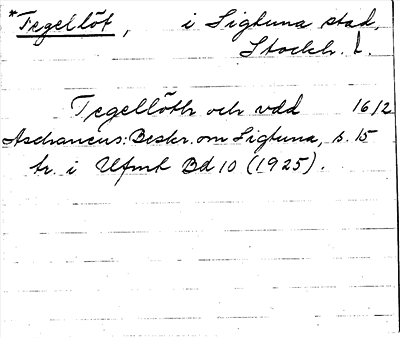 *Tegellöt, i Sigtuna stad,
Stockh. L.
Tegellöth och vdd 16/2
Aschaneus: Beskr. om Sigtuna, s. 15
tr. i Ufmt Bd 10 (1925).